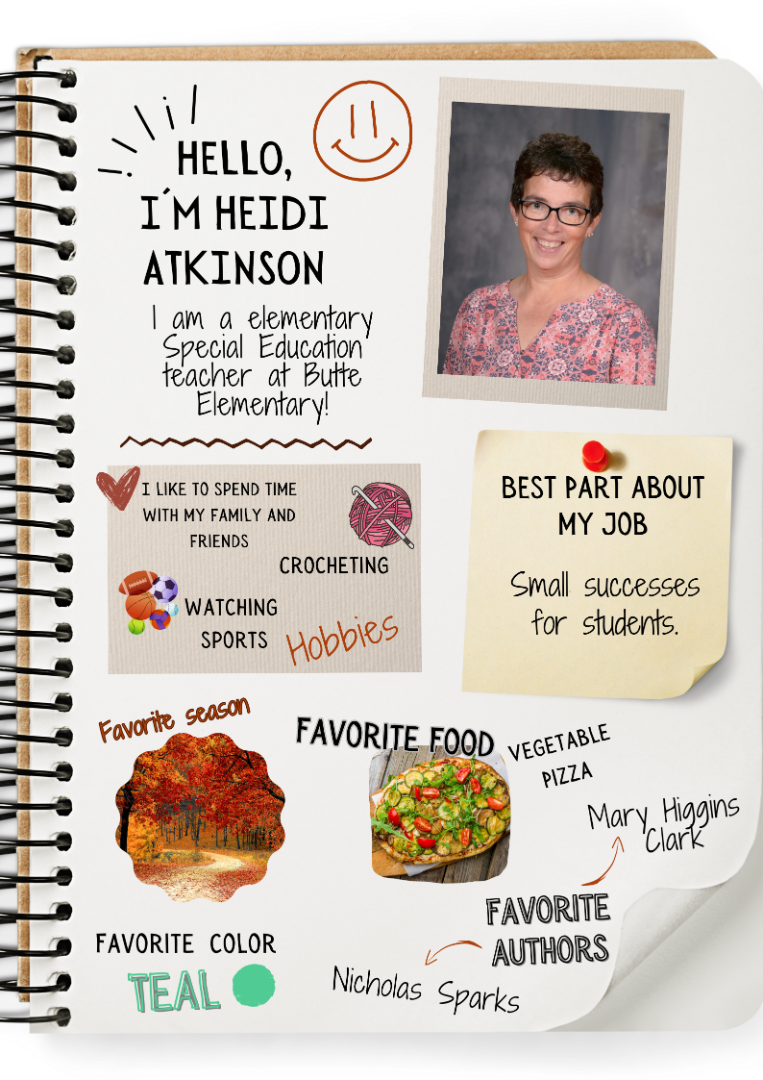 HELLO,
I´M HEIDI
ATKINSON
I am a elementary
Special Education
teacher at Butte
Elementary!
I LIKE TO SPEND TIME
WITH MY FAMILY AND
FRIENDS
CROCHETING
WATCHING
SPORTS
Hobbies
BEST PART ABOUT
MY JOB
Small successes
for students.
Favorite season
FAVORITE FOOD
VEGETABLE
PIZZA
Mary Higgins
Clark
FAVORITE
AUTHORS
Nicholas Sparks
FAVORITE COLOR
TEAL